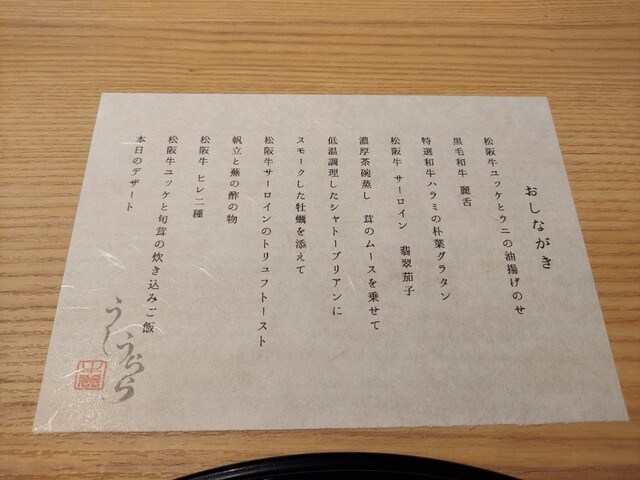 おしながき
松阪牛ユッケとウニの油揚げのせ
黒毛和牛 麗舌
特選和牛ハラミの朴葉グラタン
松阪牛 サーロイン 翡翠茄子
濃厚茶碗蒸し 茸のムースを乗せて
低温調理したシャトーブリアンに
スモークした牡蠣を添えて
松阪牛サーロインのトリュフトースト
帆立と蕪の酢の物
松阪牛 ヒレ二種
松阪牛ユッケと旬茸の炊き込みご飯
本日のデザート
うしうらら